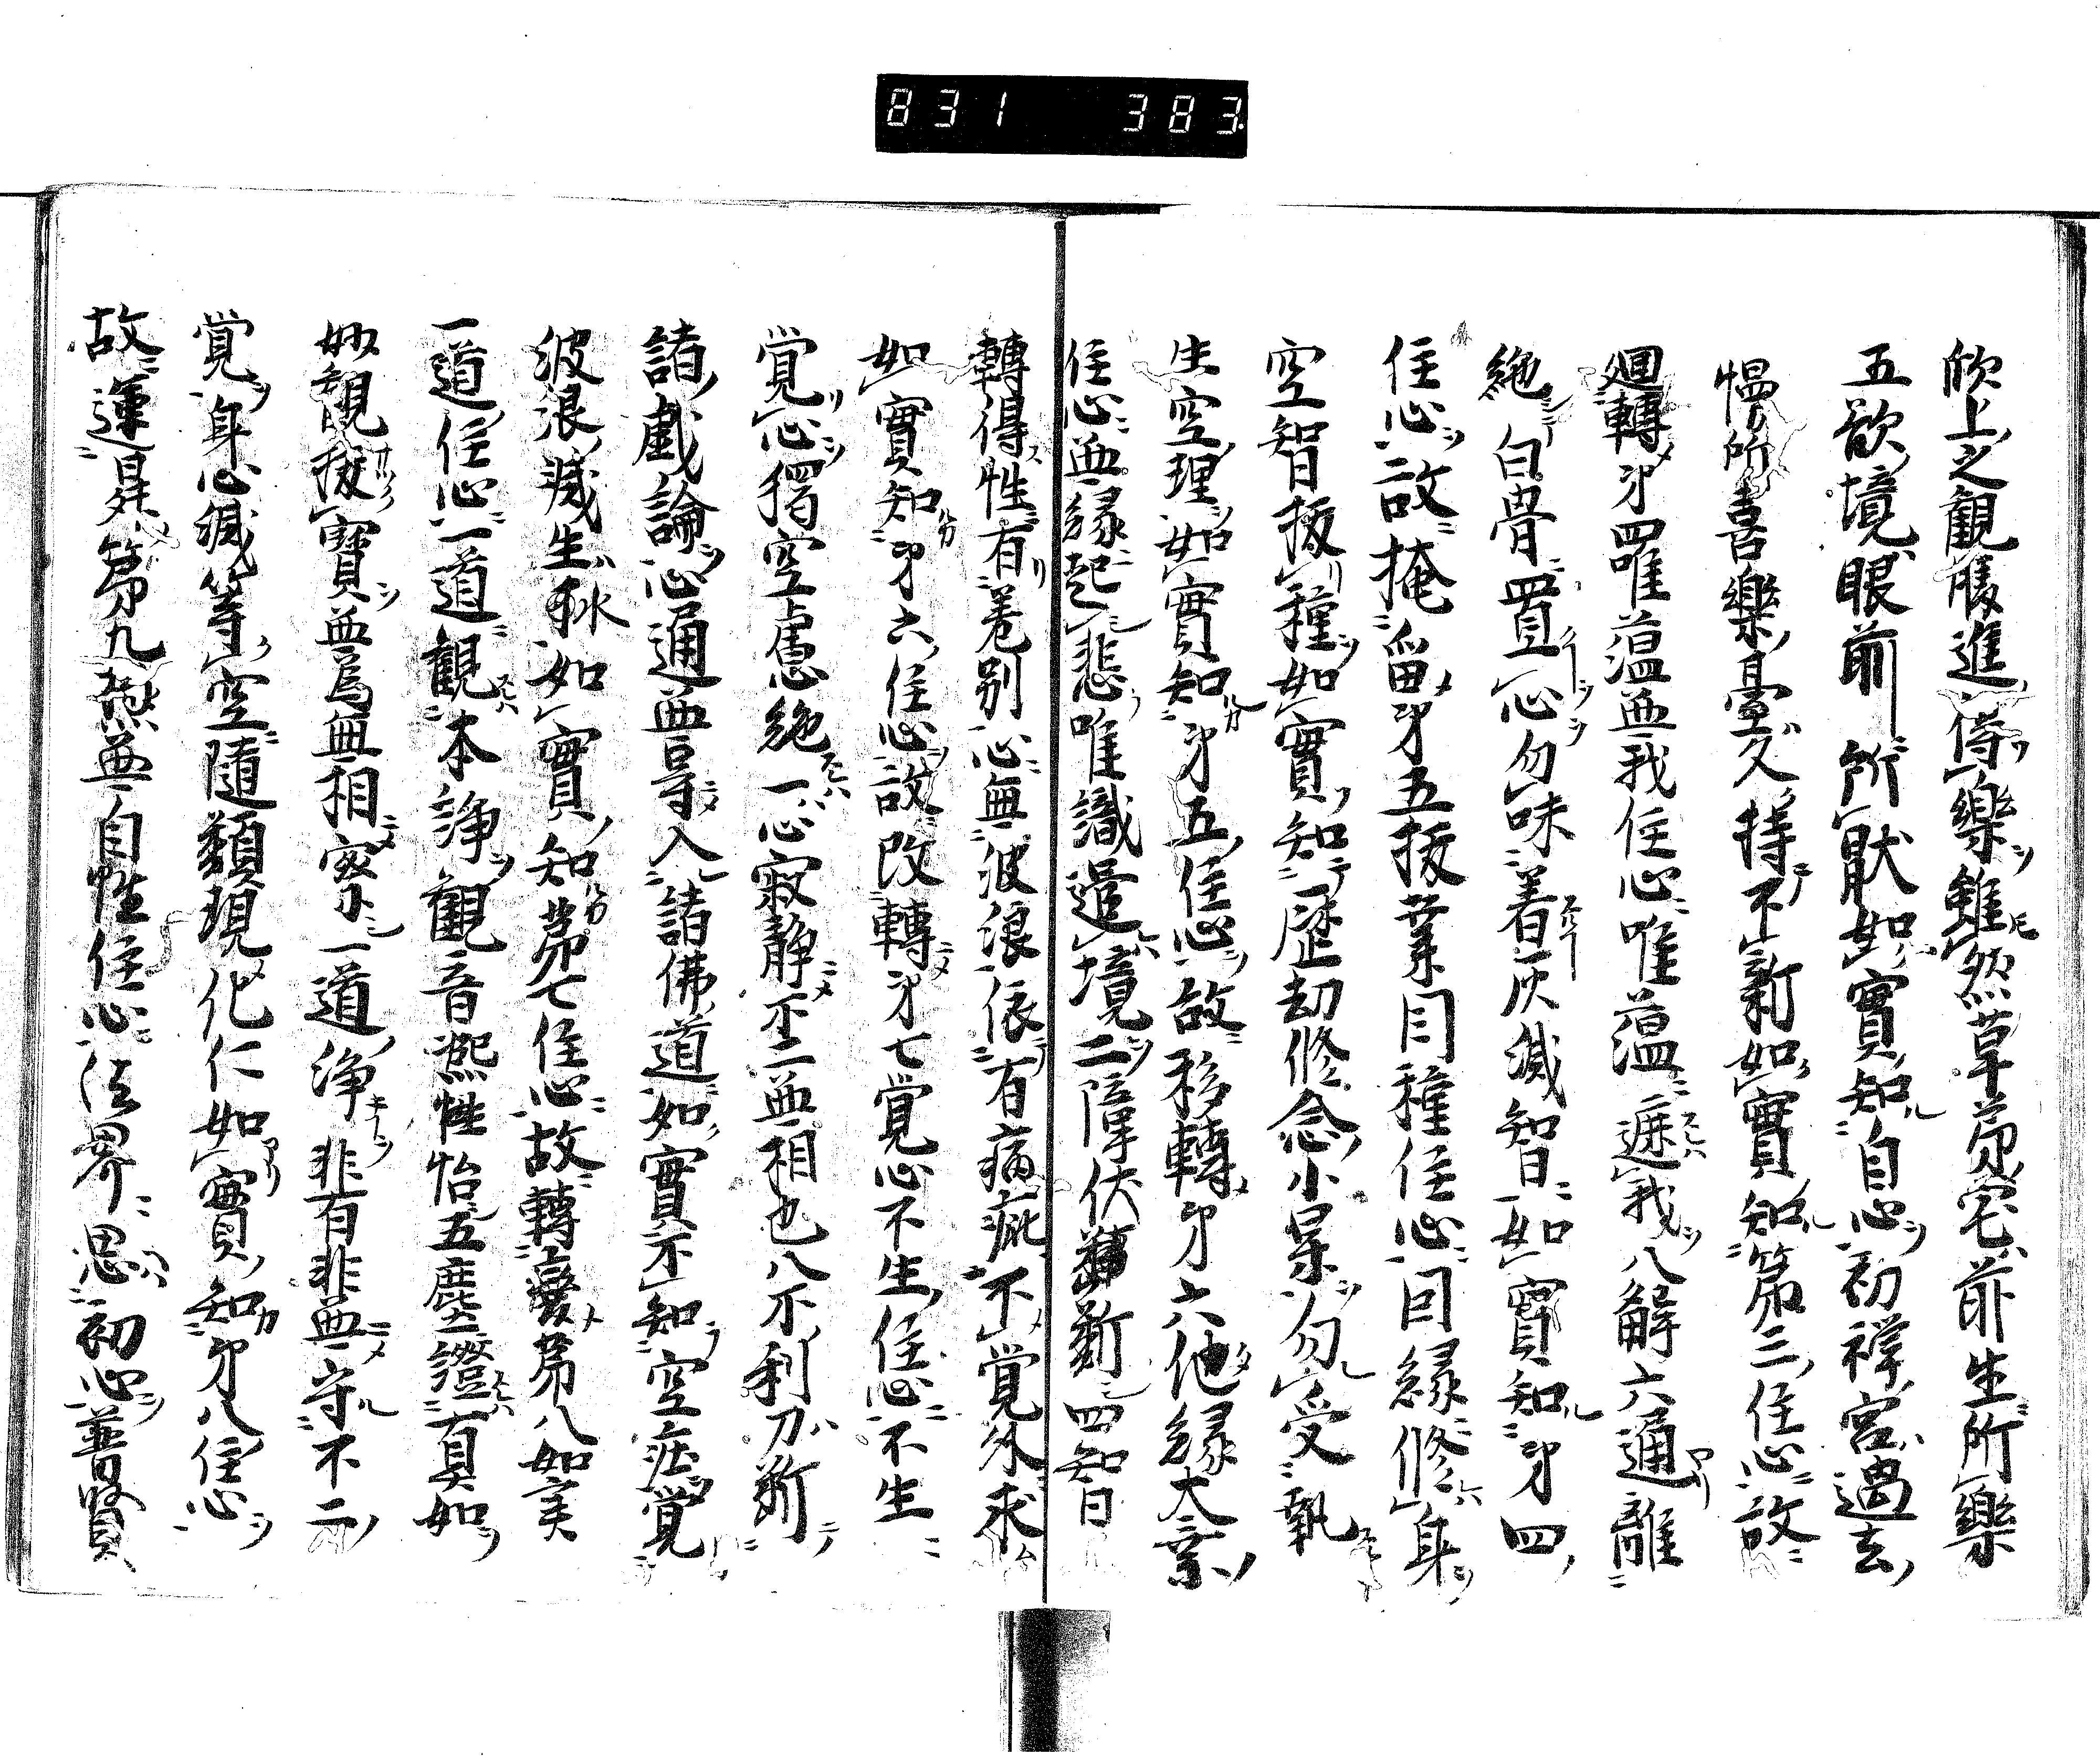 831 383
欣上之観勝進得樂雖然草菴宅前生所樂
五欲境眼前所猒如實知自心初禅宮過去
慍所喜樂臺久持不新如實知第三住心故
廻轉㐧四唯蘊無我住心唯蘊遮我八解六通離
絶白骨置心勿味着灰滅智如實知㐧四
住心故掩留㐧五抜業因種住心因縁修身
空智抜種如實知歴劫修念小果勿受執
生空理如實知㐧五住心故移轉㐧六他縁大乗
住心無縁起悲唯識遣境二障伏斷四智
轉得性有差別心無波浪依有病疵不覚外求
如實知㐧六住心故改轉㐧七覚心不生住心不生
覚心獨空慮絶一心寂静不二無相也八不利刀断
諸戯論心通無导入諸佛道如實不知空症覚
波浪滅生秌如實知㐧七住心故轉㐧八如実
一道住心一道観本浄観音熙性怡五塵澄真如
妙観抜寶無為無相寥一道浄非有非無守不二
覚身心滅等空隨類現化仁如實知㐧八住心
故運昇第九極無自性住心法界思初心普賢